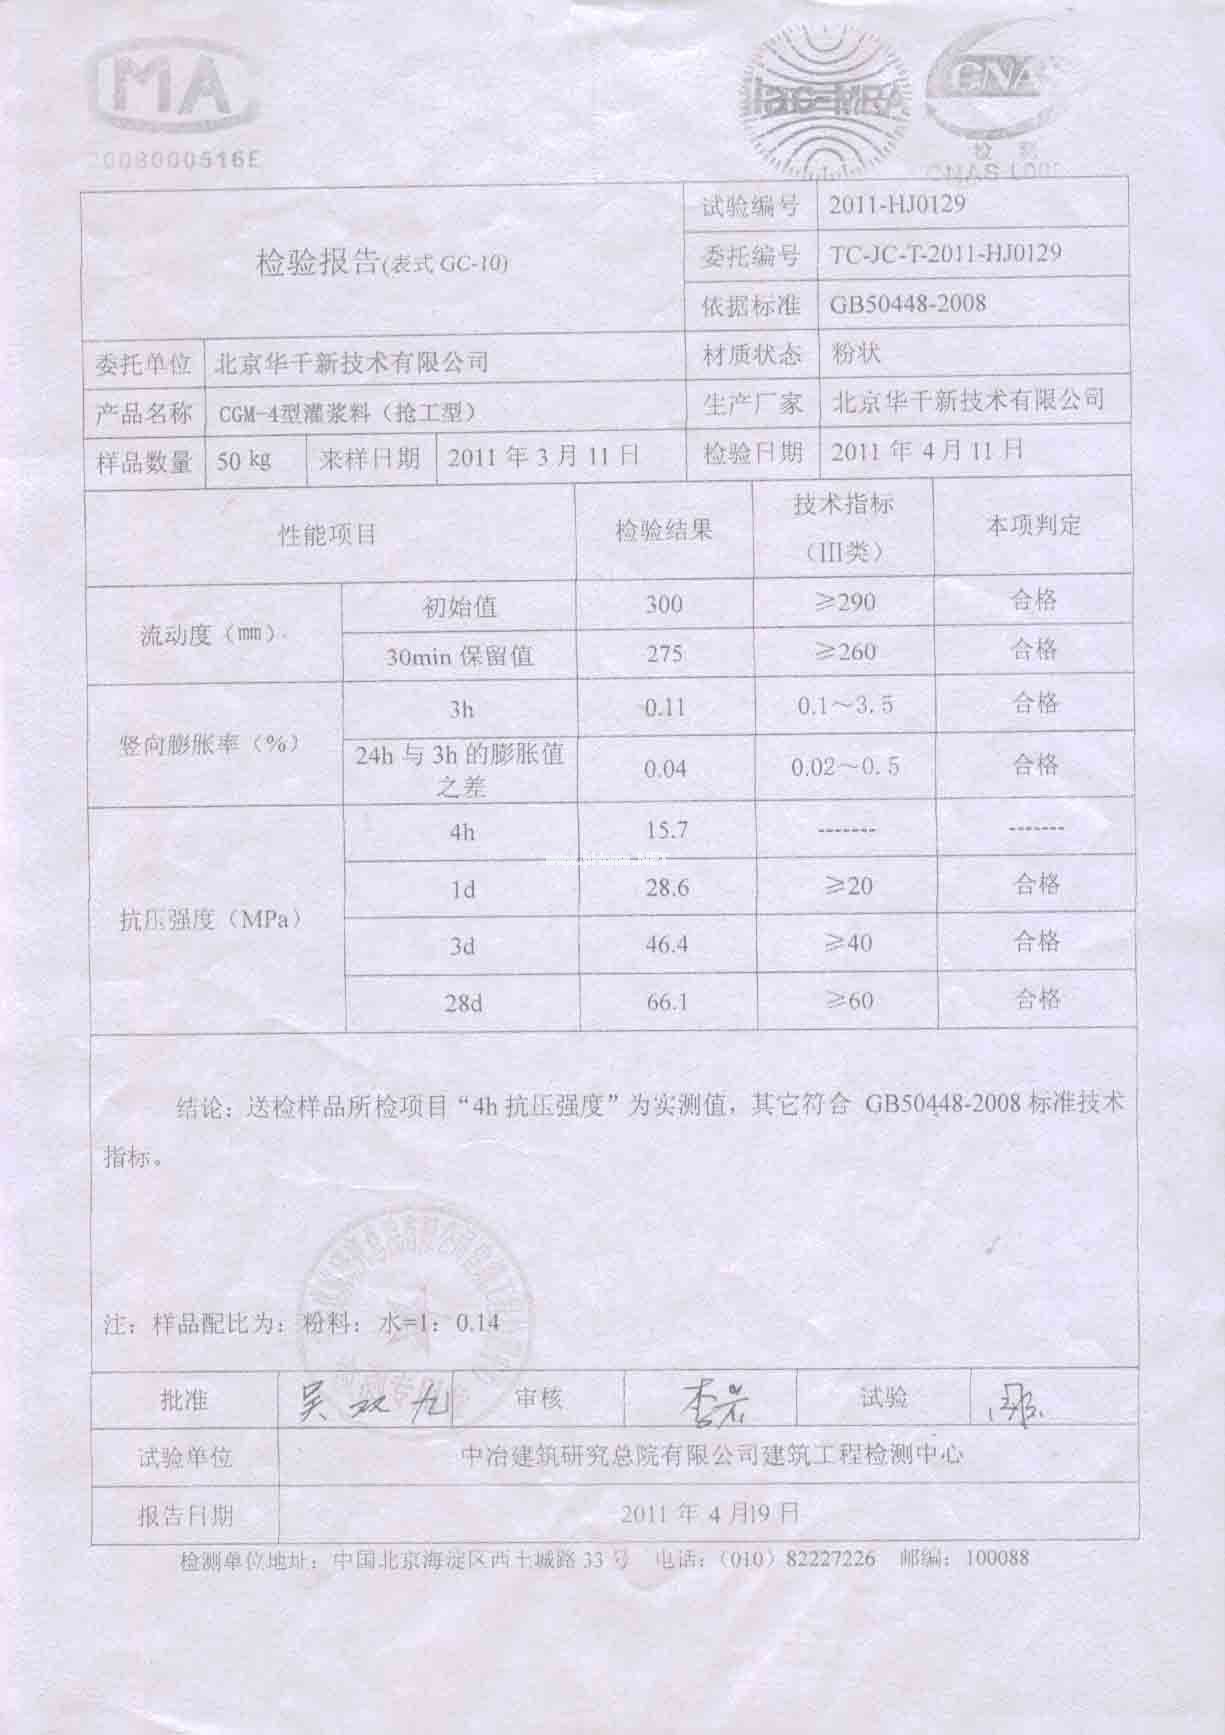 MA
2008000516E
ilac-MRA
CNAS
检验报告(表式 GC-10)
试验编号 2011-HJ0129
委托编号 TC-JC-T-2011-HJ0129
依据标准 GB50448-2008
委托单位 北京华千新技术有限公司 材质状态 粉状
产品名称 CGM-4型灌浆料（抢工型） 生产厂家 北京华千新技术有限公司
样品数量 50 kg 来样日期 2011 年 3 月 11 日 检验日期 2011 年 4 月 11 日
性能项目 检验结果 技术指标（III类） 本项判定
流动度（mm） 初始值 300 ≥290 合格
30min 保留值 275 ≥260 合格
竖向膨胀率（%） 3h 0.11 0.1～3.5 合格
24h 与 3h 的膨胀值之差 0.04 0.02～0.5 合格
抗压强度（MPa） 4h 15.7 ------- -------
1d 28.6 ≥20 合格
3d 46.4 ≥40 合格
28d 66.1 ≥60 合格
结论：送检样品所检项目“4h 抗压强度”为实测值，其它符合 GB50448-2008 标准技术
指标。
注：样品配比为：粉料：水=1：0.14
批准 吴双九 审核 李岩 试验
试验单位 中冶建筑研究总院有限公司建筑工程检测中心
报告日期 2011 年 4 月19 日
检测单位地址：中国北京海淀区西土城路 33 号 电话：（010）82227226 邮编：100088